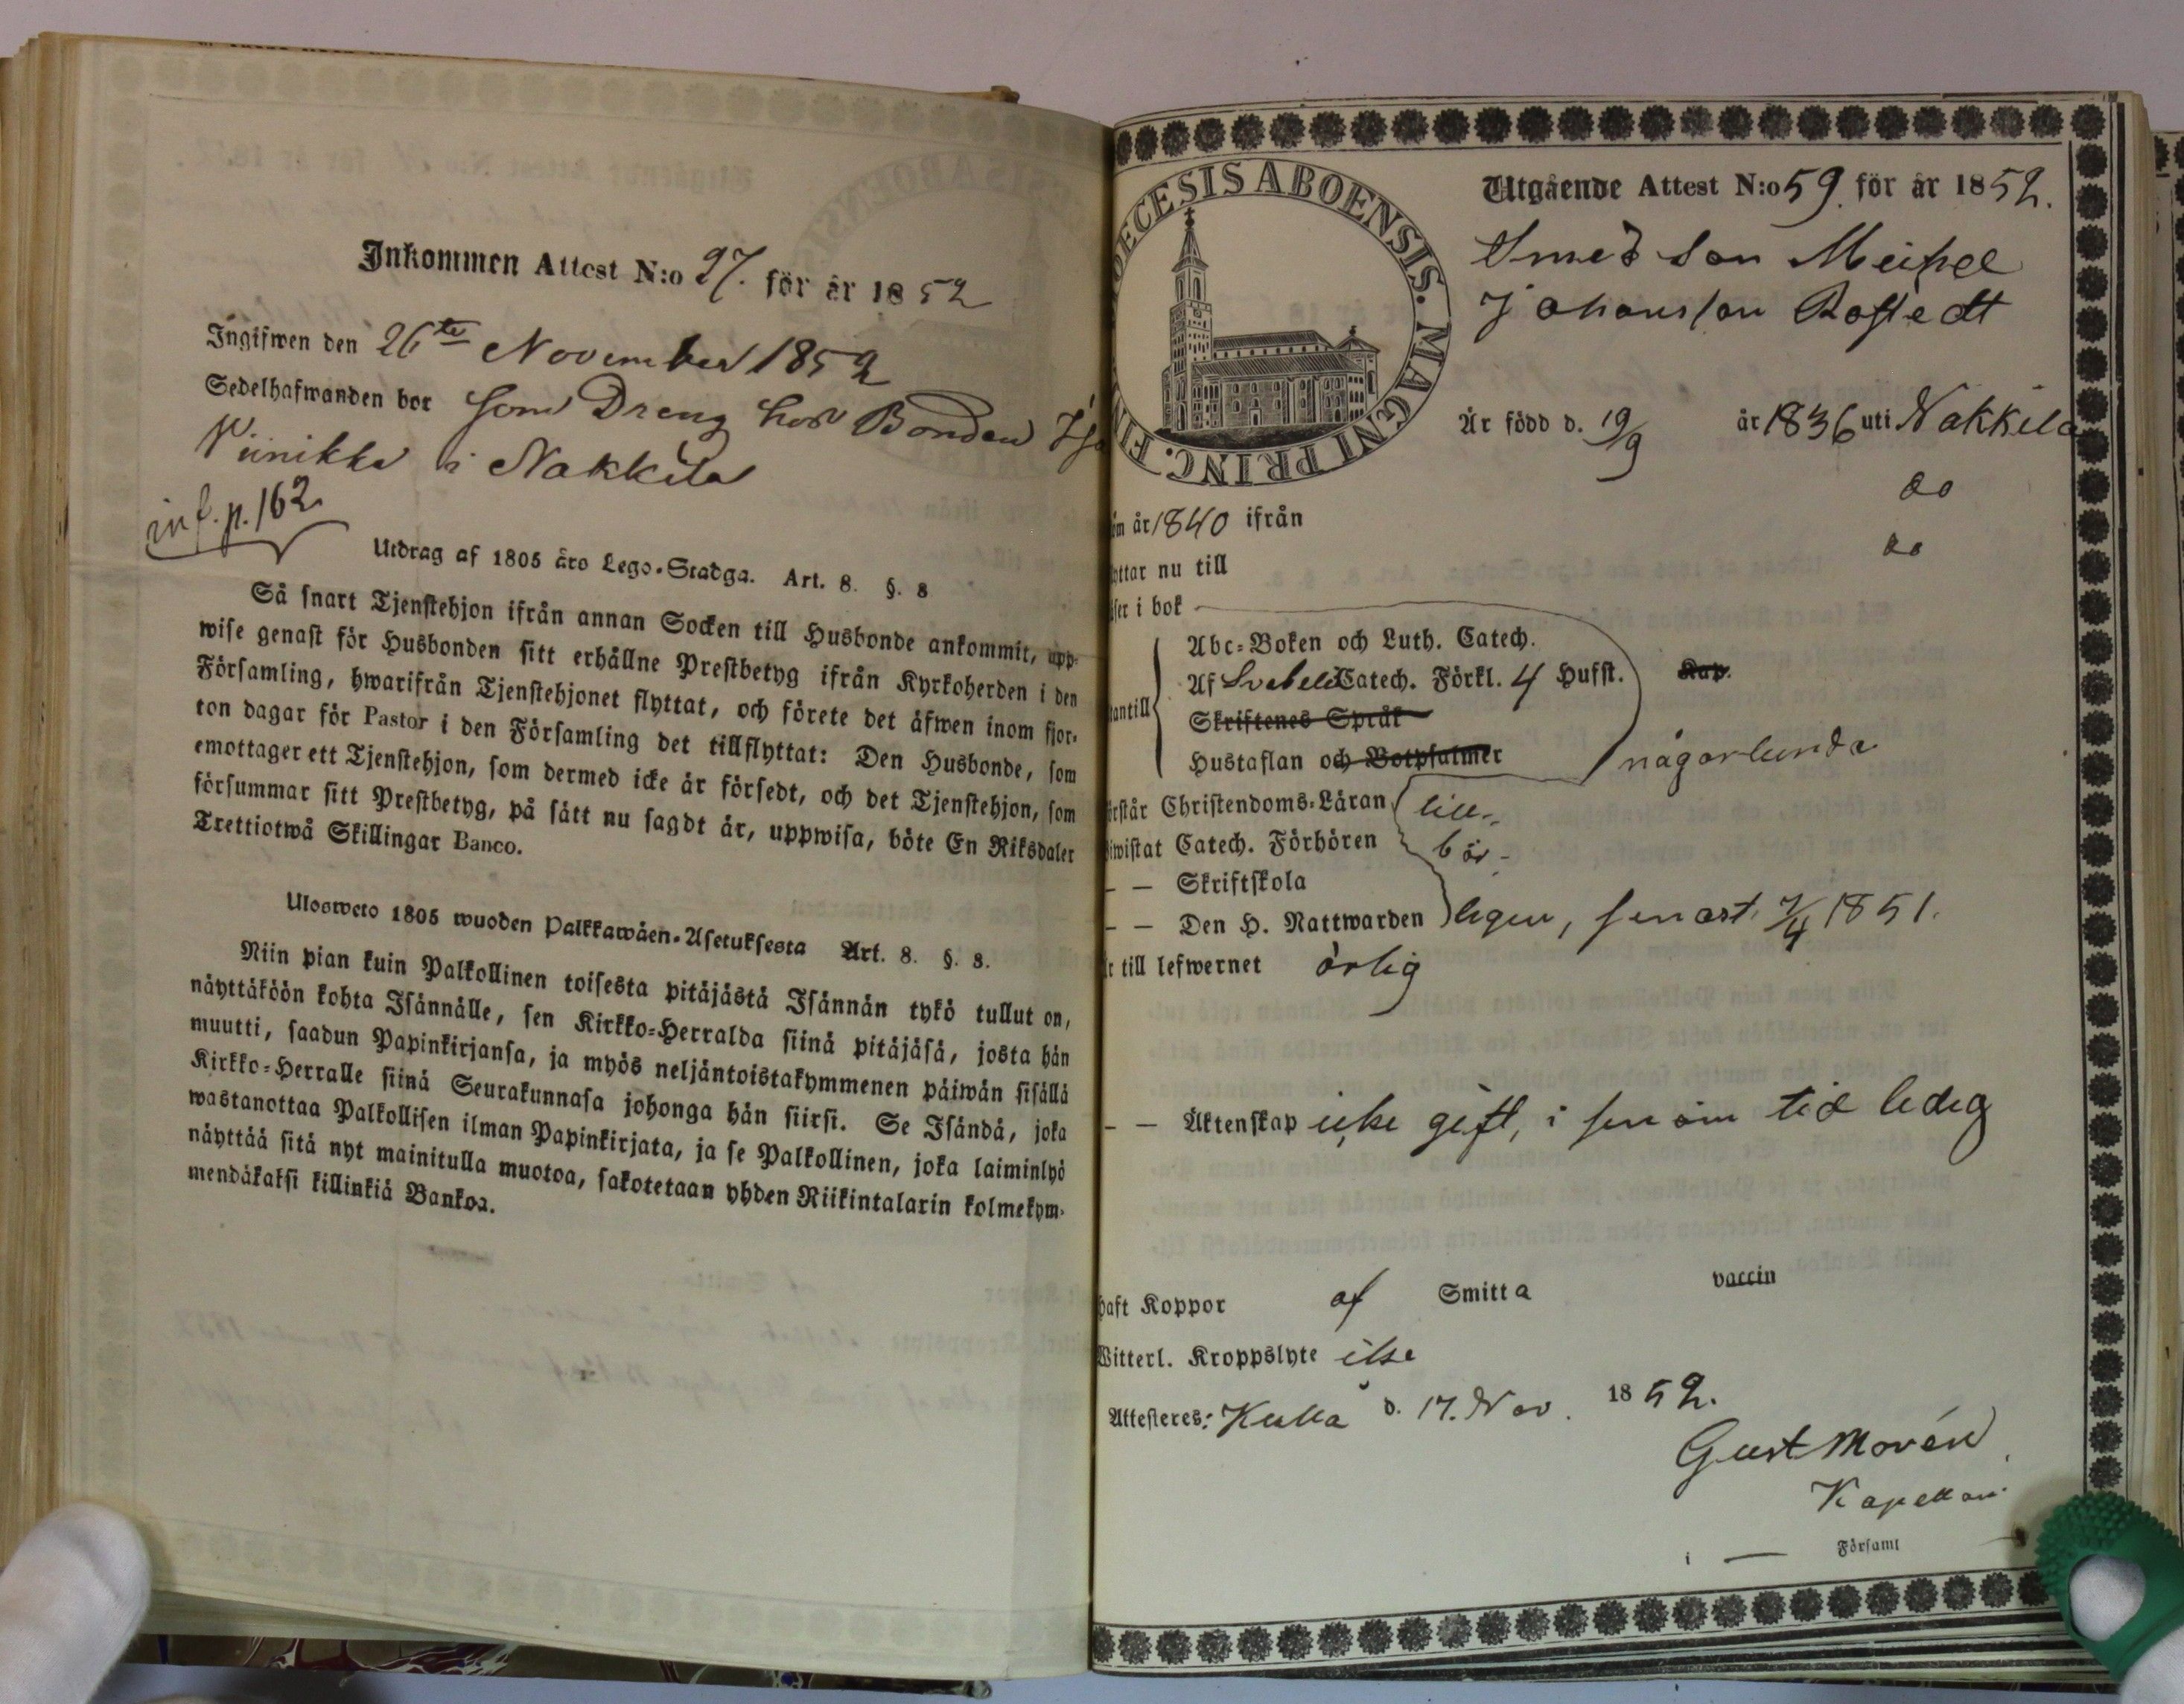 Inkommen Attest N:o 97. för år 1852
Ingifwen den 26te November 1852
Sedelhafwanden bor som Dreng hos Bonden
Viinikka i Nakkila
inf. p. 162
Utdrag af 1805 års Lego-Stadga. Art. 8. §. 8
Så snart Tjenstehjon ifrån annan Socken till Husbonde ankommit, upp-
wise genast för Husbonden sitt erhållne Prestbetyg ifrån Kyrkoherden i den
Församling, hwarifrån Tjenstehjonet flyttat, och förete det äfwen inom fjor-
ton dagar för Pastor i den Församling det tillflyttat: Den Husbonde, som
emottager ett Tjenstehjon, som dermed icke är försedt, och det Tjenstehjon, som
försummar sitt Prestbetyg, på sätt nu sagdt är, uppwisa, böte En Riksdaler
Trettiotwå Skillingar Banco.
Ulosweto 1805 wuoden Palkkawäen-Asetuksesta Art. 8. §. 8.
Niin pian kuin Palkollinen toisesta pitäjästä Isännän tykö tullut on,
näyttäköön kohta Isännälle, sen Kirkko-Herralda siinä pitäjäsä, josta hän
muutti, saadun Papinkirjansa, ja myös neljäntoistakymmenen päiwän sisällä
Kirkko-Herralle siinä Seurakunnasa johonga hän siirsi. Se Isändä, joka
wastanottaa Palkollisen ilman Papinkirjata, ja se Palkollinen, joka laiminlyö
näyttää sitä nyt mainitulla muotoa, sakotetaan yhden Riikintalarin kolmekym-
mendäkaksi killinkiä Bankoa.
OECESIS ABOENSIS. MAGNI PRINC. FIN
Utgående Attest N:o 59. för år 1852.
Smeds son Meijsel
Johansson Rostedt
Är född d. 19/9 år 1836 uti Nakkila
do
om år 1840 ifrån
do
yttar nu till
äser i bok
Abc-Boken och Luth. Catech.
Af Svebelii Catech. Förkl. 4 Hufst. Kap.
antill
Skriftenes Språk
Hustaflan och Botpsalmer någorlunda
örstår Christendoms-Läran till-
iwistat Catech. Förhören bör-
– – Skriftskola
– – Den H. Nattwarden ligen, senast 7/4 1851.
r till lefwernet ärlig
– – Äktenskap icke gift, i sen om tid ledig
haft Koppor af Smitta vaccin
Witterl. Kroppslyte icke
Attesteres: Kulla d. 17. Nov. 1852.
Gust Morén
Kapellan
i — Församl